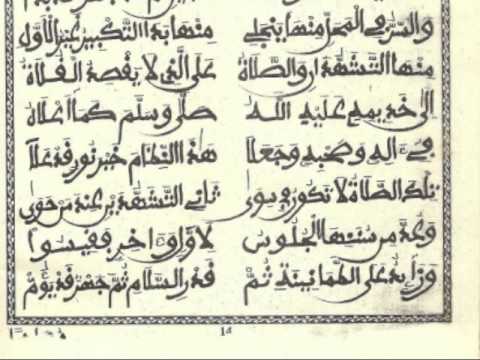 والسر في المحل منها ينجلي منها به التكبير غير الأول
منها التشهدان والصلاة على النبي لا يقصد الفلاة
الى خديمه عليه الله صلى وسلم كما أعلاه
في اله وصحبه وجعلا هذا النظام خير نور قد علا
تلك الصلاة لا تكون بسوى ثاني التشهدين عند من حوى
وعد من سننها الجلوس لأول وآخر فقيسوا
وزائد على الطمأنينة ثم قدر السلام ثم جهر قد يؤم
14